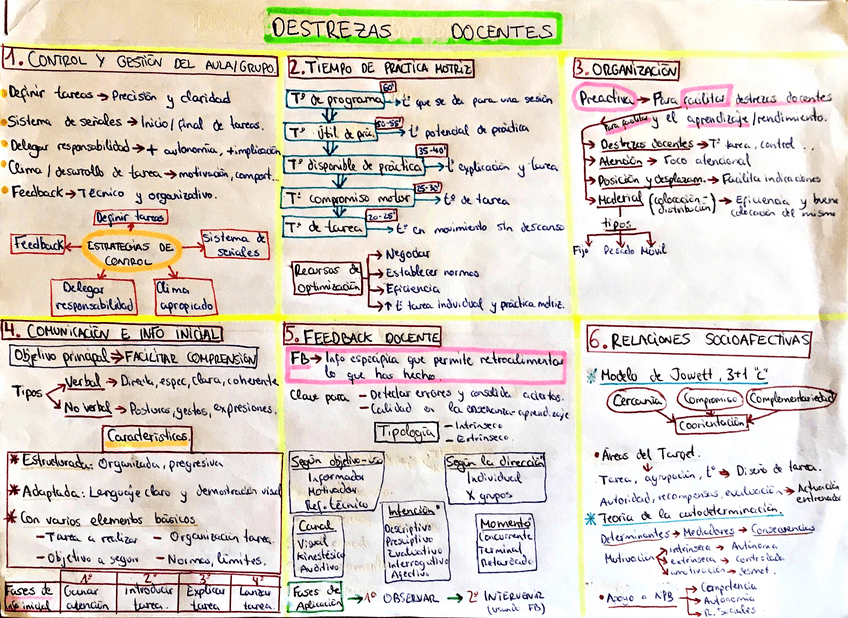 DESTREZAS DOCENTES
1. CONTROL Y GESTIÓN DEL AULA/GRUPO
Definir tareas → Precisión y claridad
Sistema de señales → Inicio/final de tareas.
Delegar responsabilidad → + autonomía, + implicación
Clima/desarrollo de tarea → motivación, comport...
Feedback → Técnico y organizativo.
Definir tareas
Feedback
ESTRATEGIAS DE CONTROL
Sistema de señales
Delegar responsabilidad
Clima apropicido
2. TIEMPO DE PRÁCTICA MOTRIZ
60'
Tº de programa → tº que se da para una sesión
50-55'
Tº Útil de prác → tº potencial de práctica
35-40'
Tº disponible de práctica → tº explicación y tarea
25-30'
Tº compromiso motor → tº de tarea
20-25'
Tº de tarea → tº en movimiento sin descanso
Recursos de optimización
→ Negociar
→ Establecer normas
→ Eficiencia
→ ↑ tº tarea individual y práctica motriz.
3. ORGANIZACIÓN
Preactiva → Para facilitar destrezas docentes
Para facilitar y el aprendizaje/rendimiento.
→ Destrezas docentes → Tº tarea, control...
→ Atención → Foco atencional
→ Posición y desplazam. → Facilita indicaciones
→ Material (colocación-distribución) → Eficiencia y buena colocación del mismo
tipos
Fijo Pesado Móvil
4. COMUNICACIÓN E INFO INICIAL
Objetivo principal → FACILITAR COMPRENSIÓN
Tipos
Verbal → Directa, espec, clara, coherente
No verbal → Posturas, gestos, expresiones.
Características
* Estructurada: Organizada, progresiva
* Adaptada: Lenguaje claro y demostración visual
* Con varios elementos básicos
- Tarea a realizar - Organización tarea.
- Objetivo a seguir - Normas, límites.
Fases de info inicial
1º Ganar atención
2º Introducir tarea.
3º Explicar tarea
4º Lanzar tarea.
5. FEEDBACK DOCENTE
FB → Info específica que permite retroalimentar
lo que has hecho.
Clave para - Detectar errores y consolide aciertos.
- Calidad en la enseñanza-aprendizaje
Tipología
- Intrínseco
- Extrínseco.
Según objetivo-uso
Informador
Motivador
Ref. técnico
Según la dirección
Individual
X grupos
Canal
Visual
Kinestésico
Auditivo
Intención
Descriptivo
Prescriptivo
Evaluativo
Interrogativo
Afectivo
Momento
Concurrente
Terminal
Retardado
Fases de Aplicación → 1º OBSERVAR → 2º INTERVENIR
(usando FB)
6. RELACIONES SOCIOAFECTIVAS
* Modelo de Jowett, 3+1 "c"
Cercanía Compromiso Complementariedad
Coorientación
• Áreas del Target.
Tarea, agrupación, tº → Diseño de tarea.
Autoridad, recompensas, evaluación → Actuación entrenador
* Teoría de la autodeterminación.
Determinantes → Mediadores → Consecuencias
Motivación
intrínseca → Autónoma
extrínseca → Controlada
amotivación → Desmot.
• Apoyo a NPB
→ Competencia
→ Autonomía
→ R. Sociales